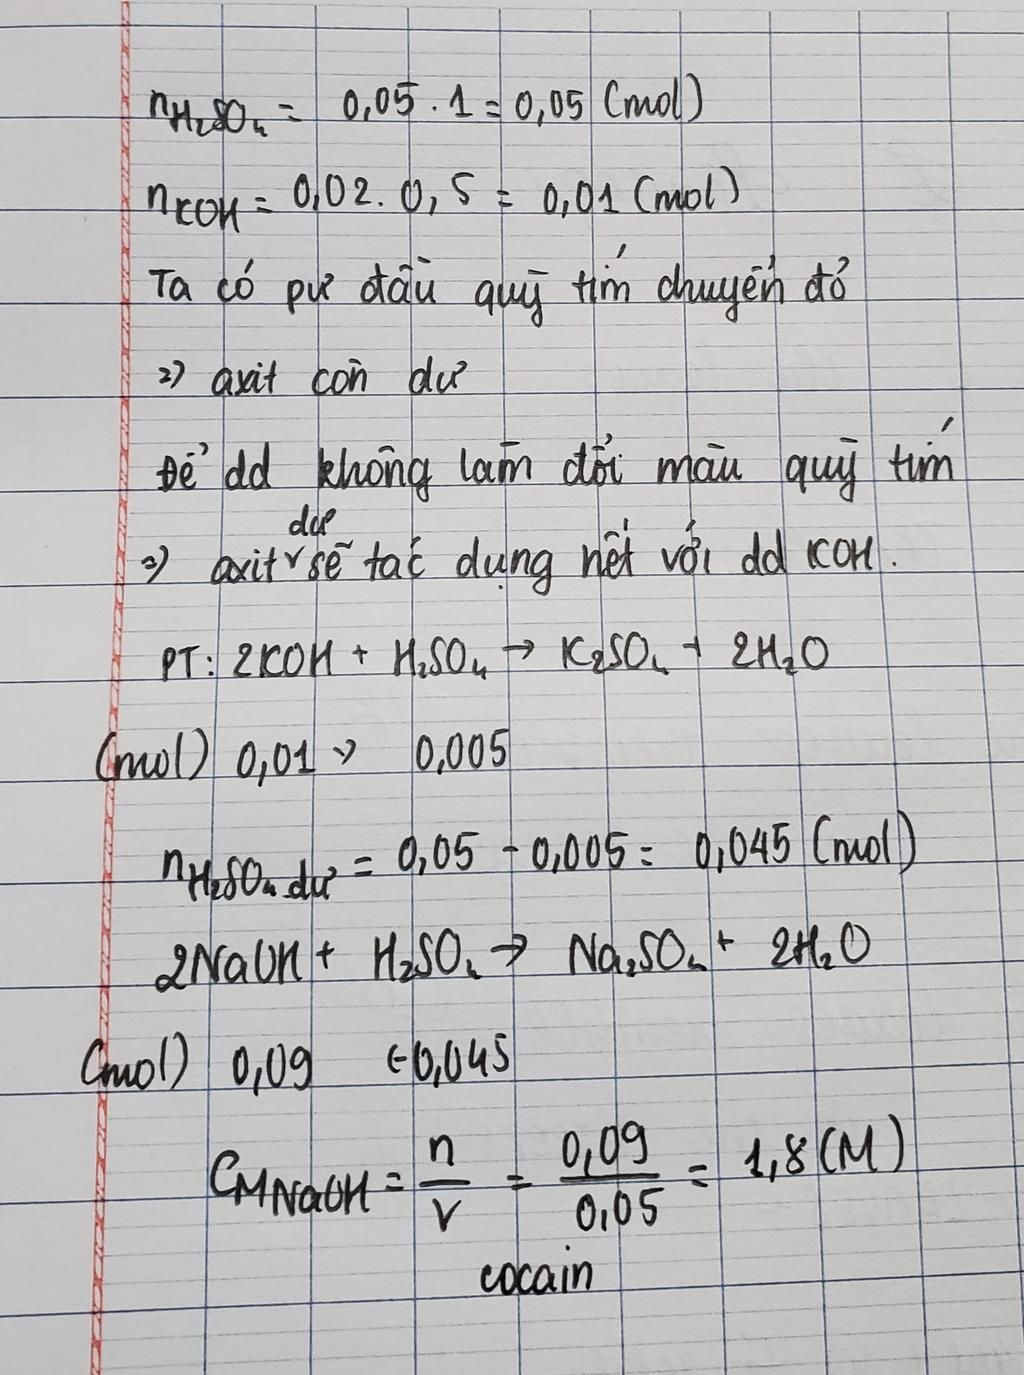 nH₂SO₄ = 0,05 . 1 = 0,05 (mol)
nKOH = 0,02 . 0,5 = 0,01 (mol)
Ta có pư đầu quỳ tím chuyển đỏ
=) axit còn dư
Để dd không làm đổi màu quỳ tím
dư
=) axit v sẽ tác dụng hết với dd KOH.
PT: 2KOH + H₂SO₄ → K₂SO₄ + 2H₂O
(mol) 0,01 > 0,005
nH₂SO₄ dư = 0,05 - 0,005 = 0,045 (mol)
2NaOH + H₂SO₄ → Na₂SO₄ + 2H₂O
(mol) 0,09 ← 0,045
CM NaOH = n/V = 0,09/0,05 = 1,8 (M)
cocain